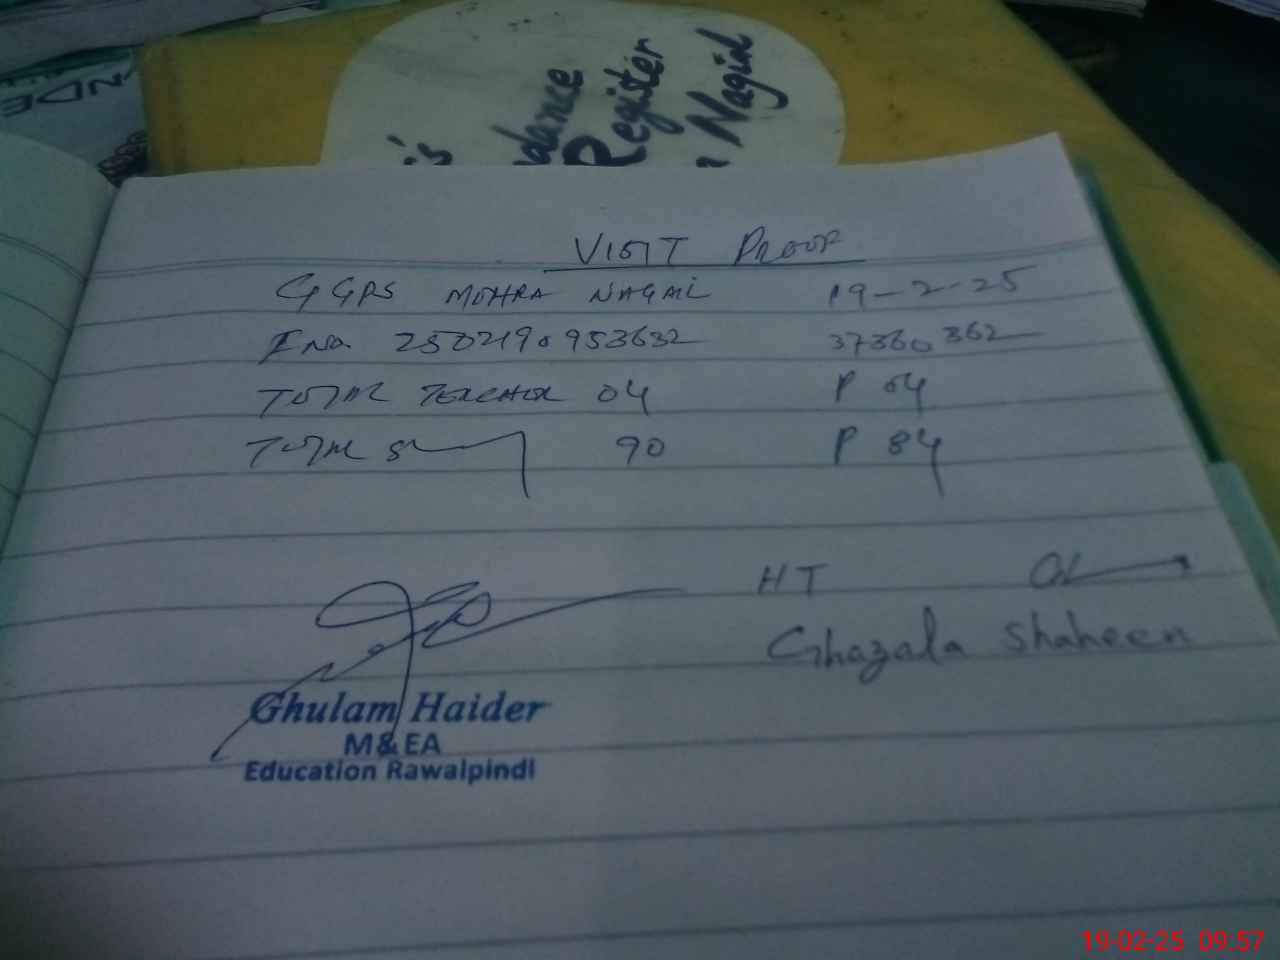 's
dance
Register
Nagial
VISIT PROOF
GGPS MOHRA NAGAIL 19-2-25
I No. 2502190953632 37360362
TOTAL TEACHER 04 P 04
TOTAL 90 P 84
HT
Ghazala Shaheen
Ghulam Haider
M&EA
Education Rawalpindi
19-02-25 09:57